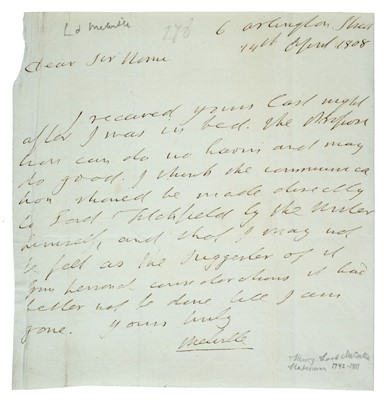 Ld Melville
278
6 Arlington Street
14th April 1808
Dear Sir Home
I received yours last night
after I was in bed. The Proposi
tion can do no harm and may
do good. I think the communica
tion should be made directly
to Lord Titchfield by the writer
himself, and that I may not
be felt as the suggester of it
from personal considerations it had
better not be done till I am
gone. Yours truly
Melville
Henry Lord Melville
Statesman 1742-1811